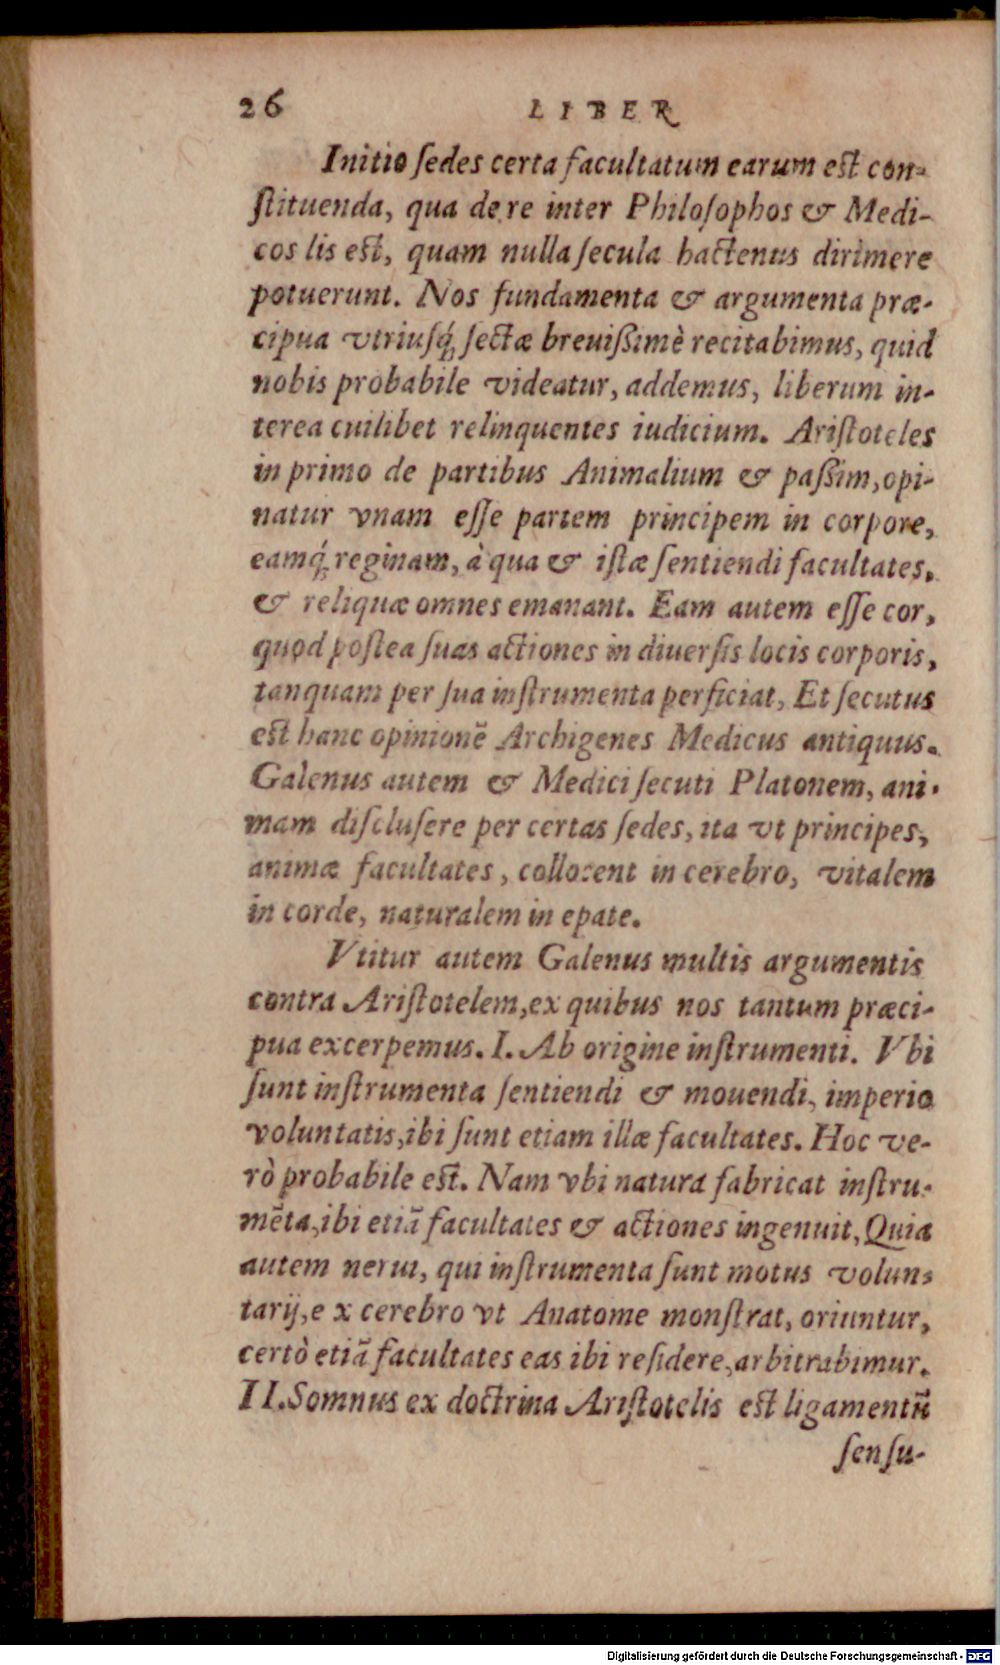 26 LIBER
Initio ſedes certa facultatum earum eſt con-
ſtituenda, qua de re inter Philoſophos & Medi-
cos lis eſt, quam nulla ſecula hactenus dirimere
potuerunt. Nos fundamenta & argumenta præ-
cipua vtriuſq́ꝫ ſectæ breuißimè recitabimus, quid
nobis probabile videatur, addemus, liberum in-
terea cuilibet relinquentes iudicium. Ariſtoteles
in primo de partibus Animalium & paßim, opi-
natur vnam eſſe partem principem in corpore,
eamq́ꝫ reginam, à qua & iſtæ ſentiendi facultates,
& reliquæ omnes emanant. Eam autem eſſe cor,
quod poſtea ſuas actiones in diuerſis locis corporis,
tanquam per ſua inſtrumenta perficiat, Et ſecutus
eſt hanc opinionẽ Archigenes Medicus antiquus.
Galenus autem & Medici ſecuti Platonem, ani-
mam diſcluſere per certas ſedes, ita vt principes,
animæ facultates, collocent in cerebro, vitalem
in corde, naturalem in epate.
Vtitur autem Galenus multis argumentis
contra Ariſtotelem, ex quibus nos tantum præci-
pua excerpemus. I. Ab origine inſtrumenti. Vbi
ſunt inſtrumenta ſentiendi & mouendi, imperio
voluntatis, ibi ſunt etiam illæ facultates. Hoc ve-
rò probabile eſt. Nam vbi natura fabricat inſtru-
mẽta, ibi etiã facultates & actiones ingenuit, Quia
autem nerui, qui inſtrumenta ſunt motus volun-
tarij, e x cerebro vt Anatome monſtrat, oriuntur,
certò etiã facultates eas ibi reſidere, arbitrabimur.
II. Somnus ex doctrina Ariſtotelis eſt ligamentũ
ſenſu-
Digitalisierung gefördert durch die Deutsche Forschungsgemeinschaft - DFG